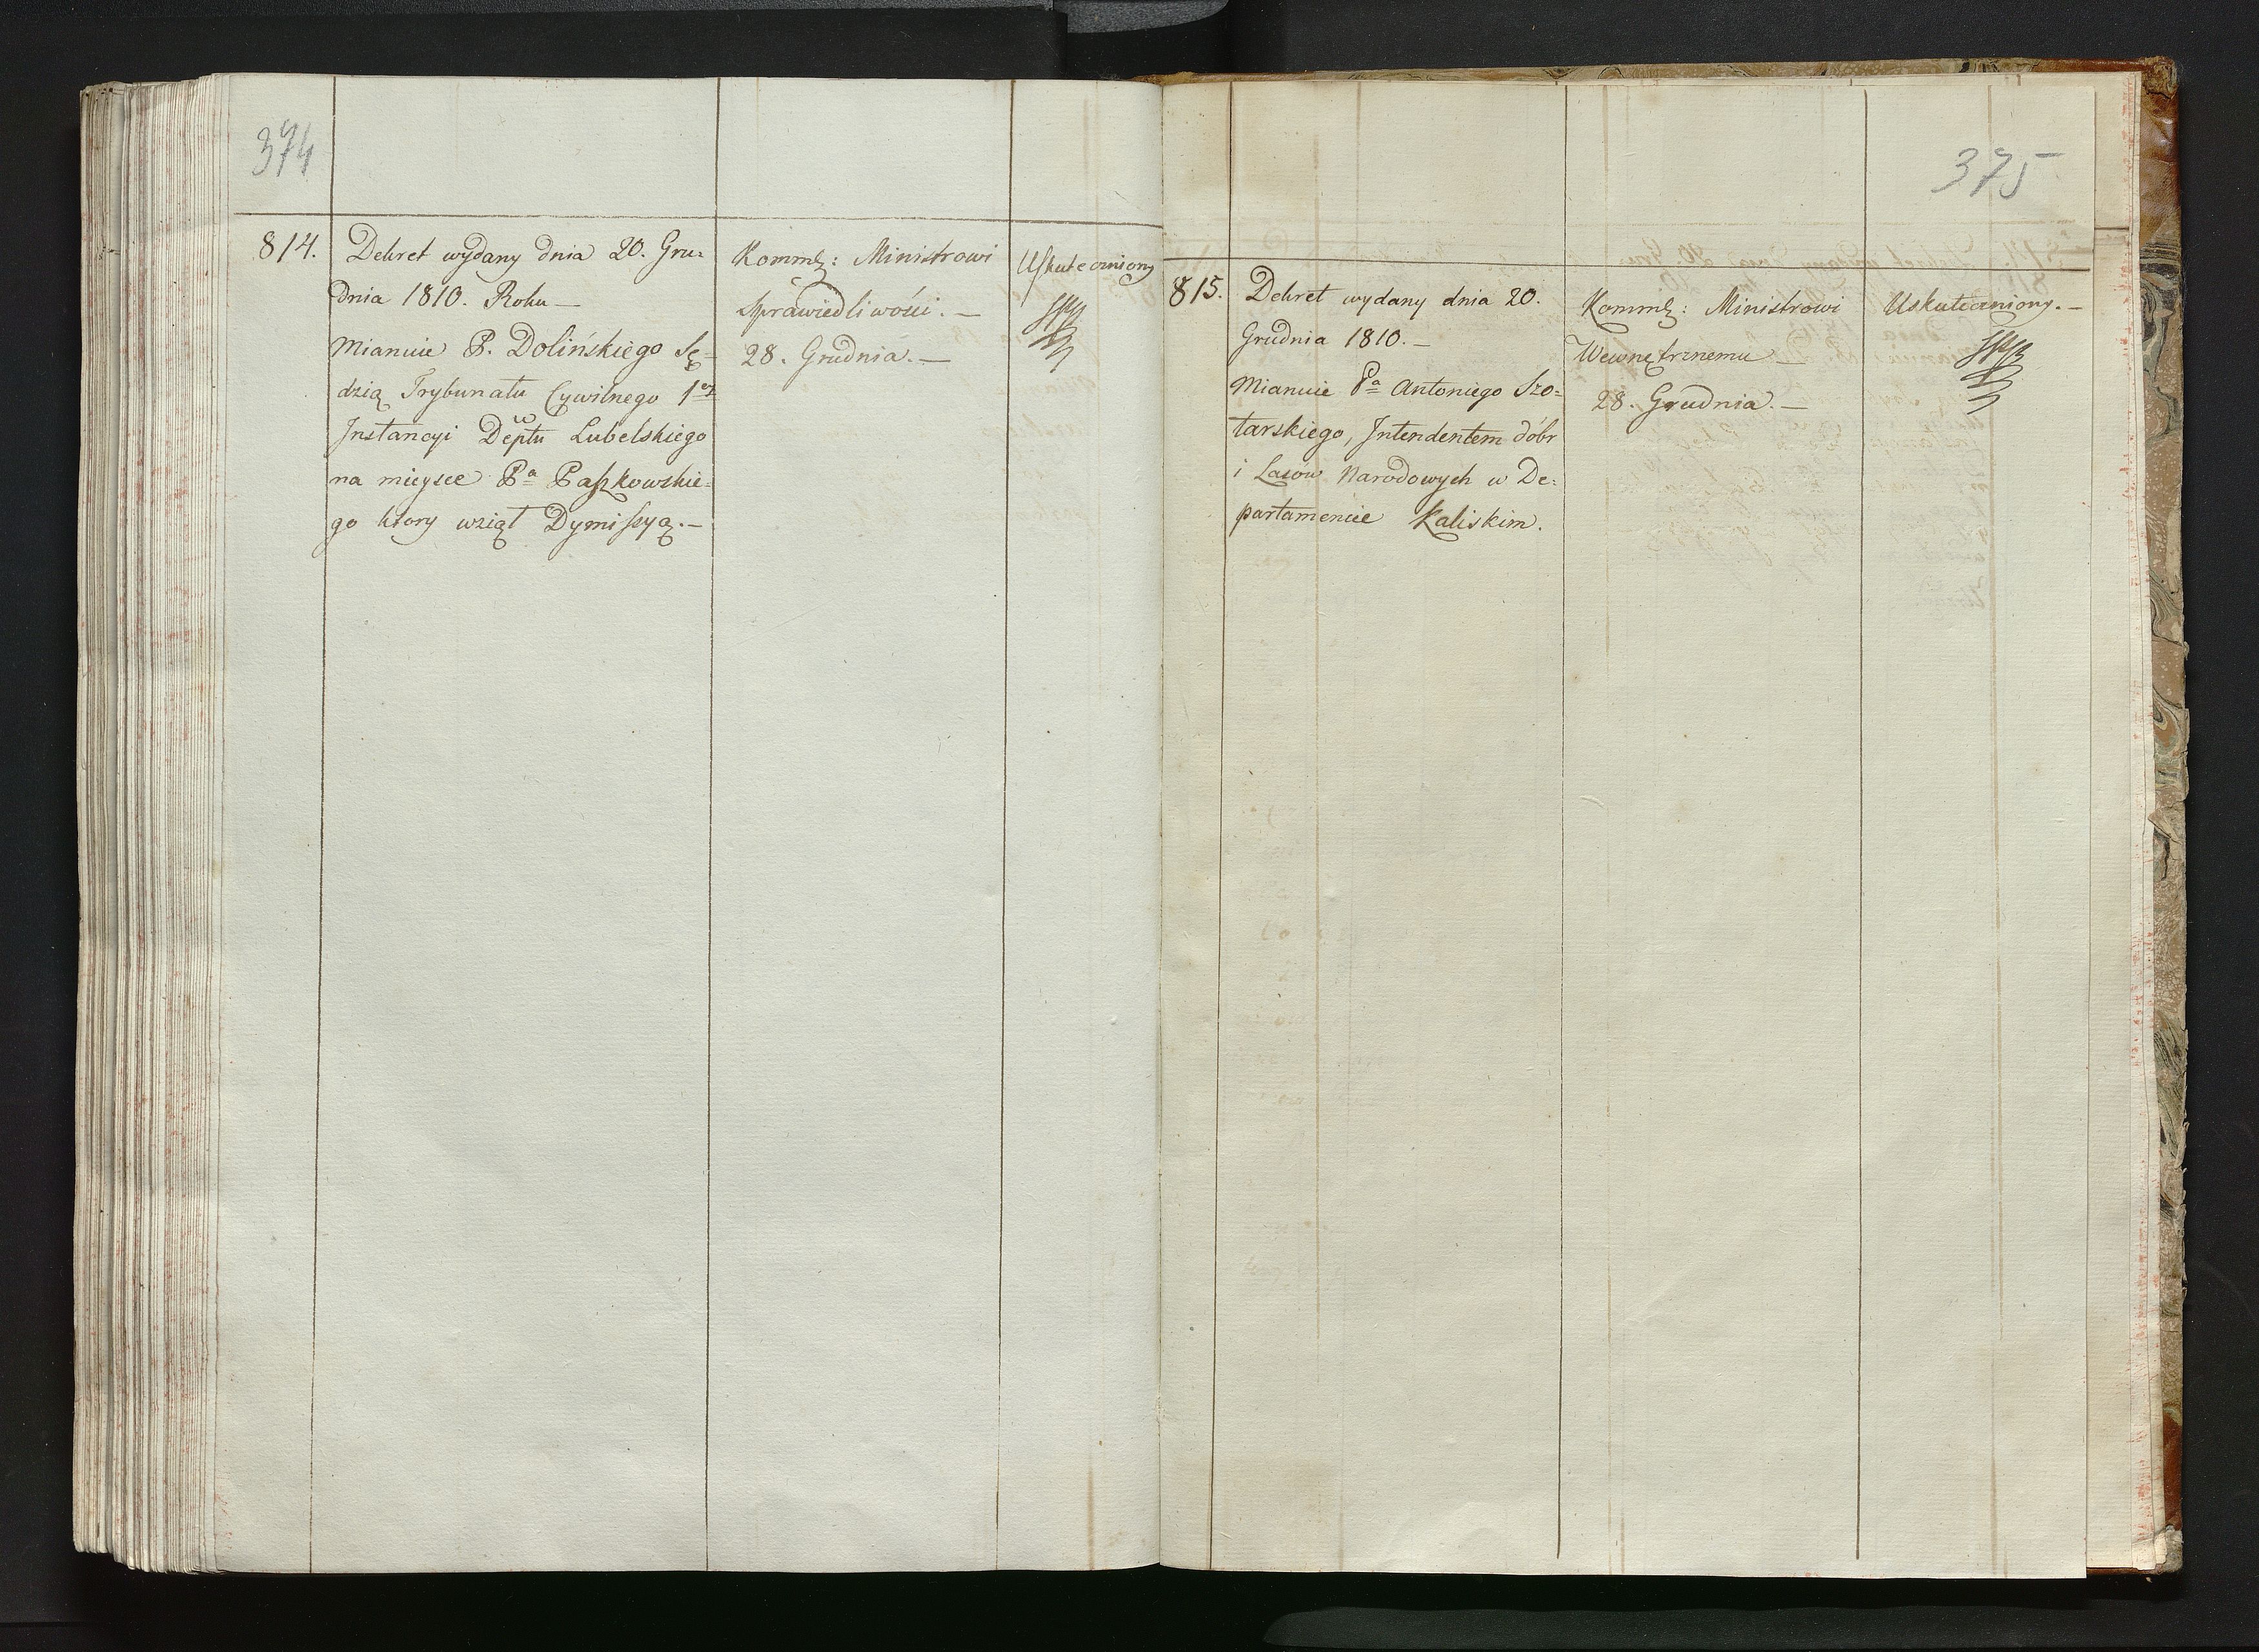 374
814. Dekret wydany dnia 20. Gru-
dnia 1810. Roku —
Mianuie P. Dolińskiego Sę-
dzią Trybunału Cywilnego 1ey
Instancyi w Deptu Lubelskiego
na mieysce Pa Paszkowskie-
go ktory wziął Dymissyą. —
Kommk: Ministrowi
Sprawiedliwości. —
28. Grudnia. —
Uskuteczniony
375
815. Dekret wydany dnia 20.
Grudnia 1810. —
Mianuie Pa Antoniego Szo-
tarskiego, Intendentem dóbr
i Lasów Narodowych w De-
partamencie Kaliskim.
Kommk: Ministrowi
Wewnętrznemu —
28. Grudnia. —
Uskuteczniony. —